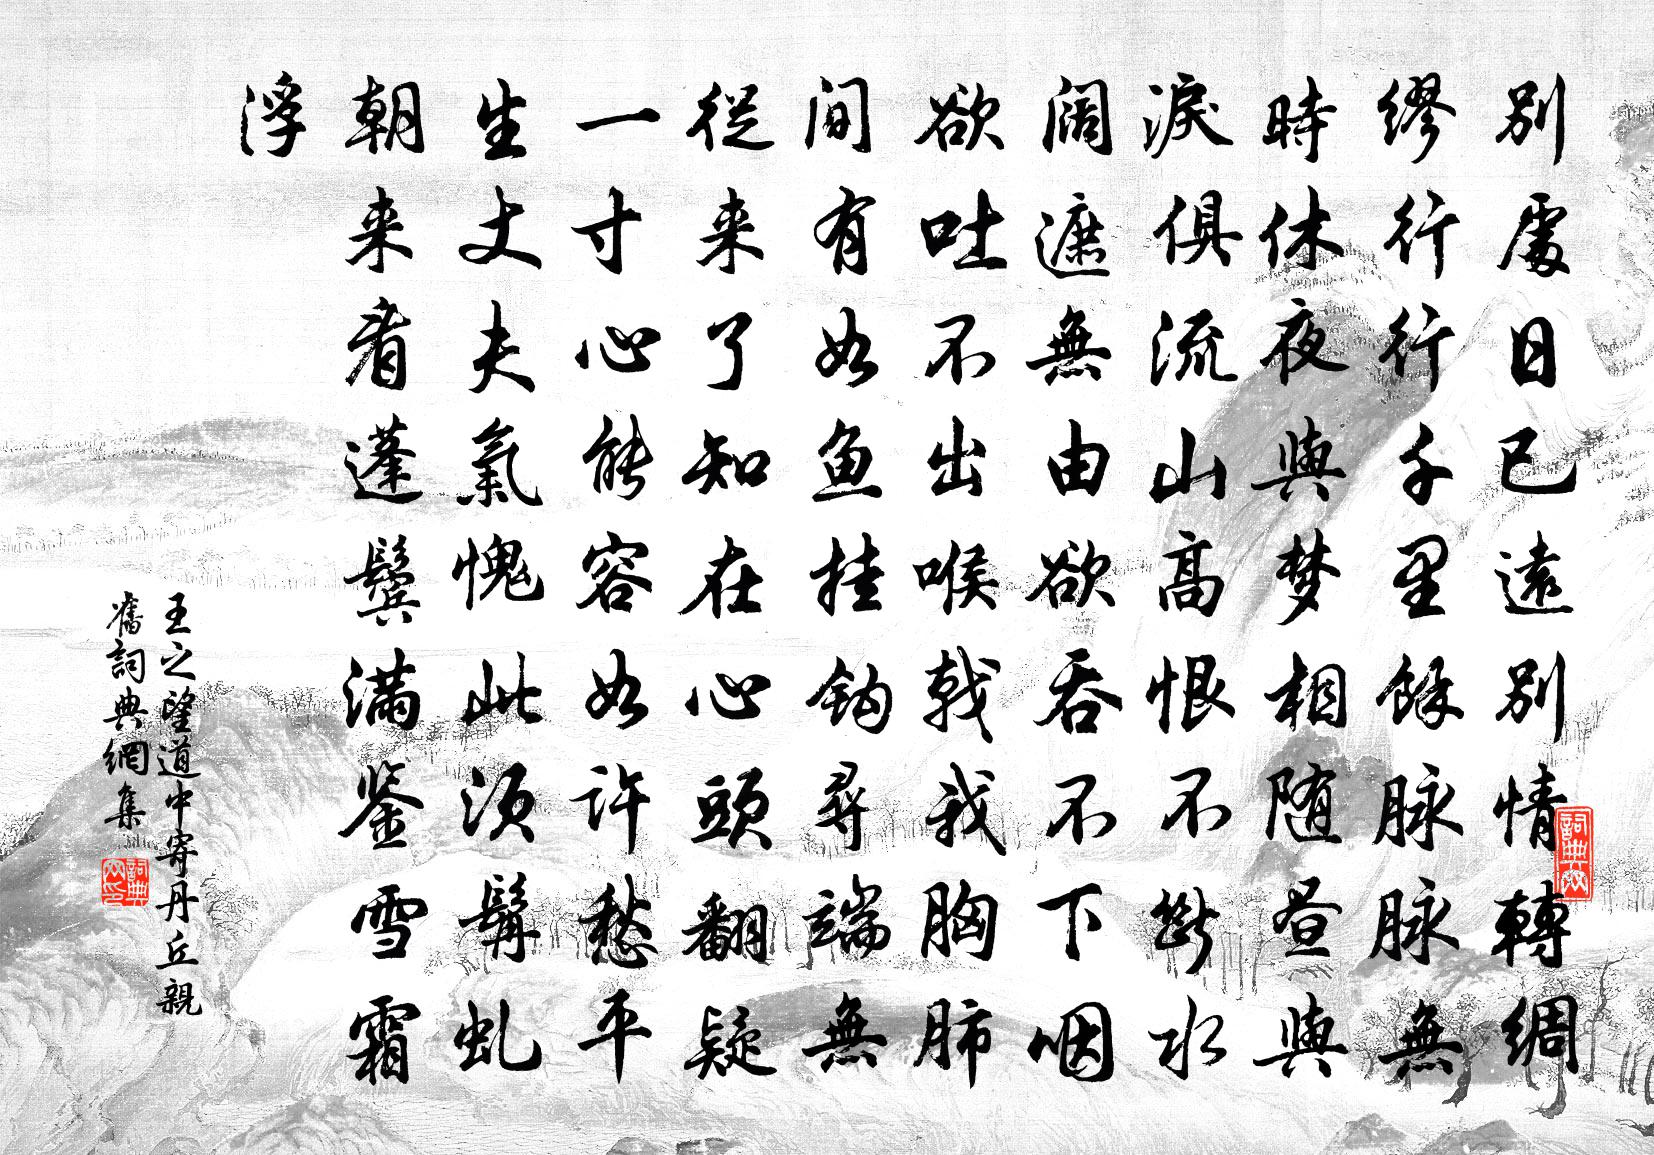 别處日已遠别情轉綢
繆行行千里餘脉脉無
時休夜與梦相随昼與
淚俱流山高恨不斷水
闊遮無由欲吞不下咽
欲吐不出喉戟我胸肺
间有如鱼挂鈎尋端無
從来了知在心頭翻疑
一寸心能容如許愁平
生丈夫氣愧此須髯虬
朝来看蓬鬢满鉴雪霜
浮
王之望道中寄丹丘親
舊詞典網集
詞典網
詞典網印